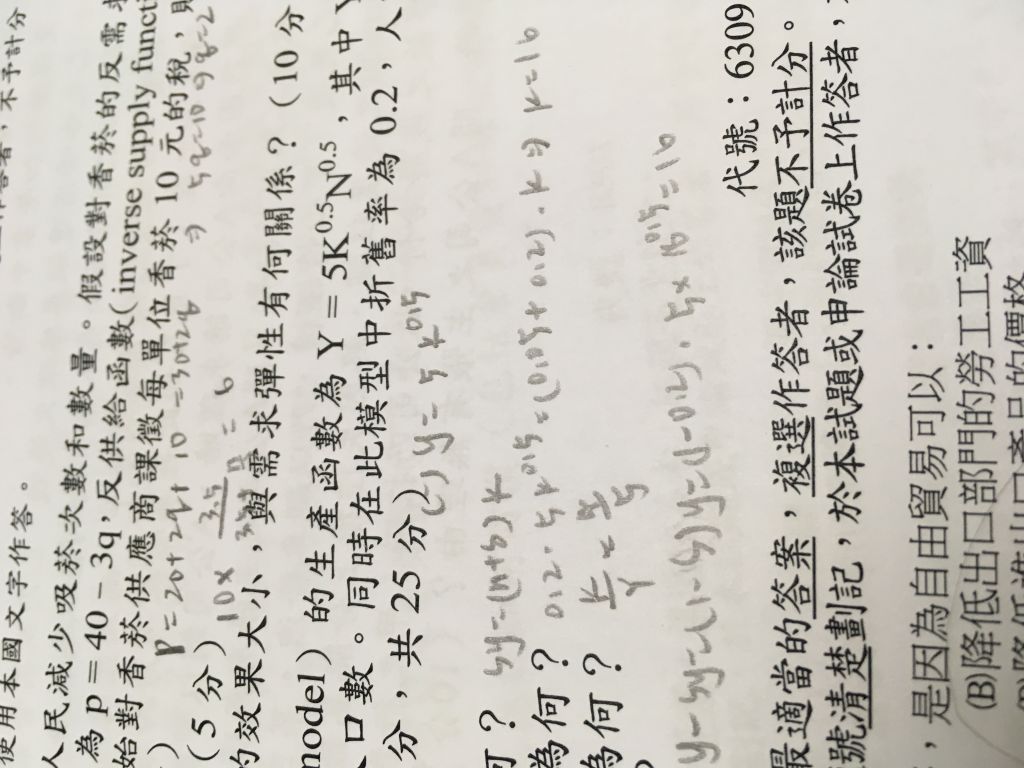 使用本國文字作答。 作答者，不予計分
人民減少吸菸次數和數量。假設對香菸的反需求
為 p = 40 − 3q，反供給函數(inverse supply functi
始對香菸供應商課徵每單位香菸 10 元的稅，則
P = 20+2q+10 = 30+2q ⇒ 5q=10 ⇒ q=2
(5 分)
的效果大小，與需求彈性有何關係？(10 分
model) 的生產函數為 Y = 5K^0.5N^0.5，其中 Y
人口數。同時在此模型中折舊率為 0.2，人
分，共 25 分)
(一) y = 5 k^0.5
何？ sy = (n+δ) k
為何？ 0.2 · 5 k^0.5 = (0.05+0.2) · k ⇒ k=16
為何？
y − sy = (1−s) y = (1−0.2) · 5 × 16^0.5 = 16
代號：6309
最適當的答案，複選作答者，該題不予計分。
號清楚劃記，於本試題或申論試卷上作答者，
，是因為自由貿易可以：
(B)降低出口部門的勞工工資